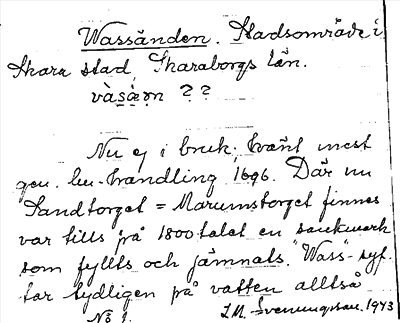 Wassänden. Stadsområde i
Skara stad, Skaraborgs län.
vàsæ̀ṇ ? ?
Nu ej i bruk; känt mest
gen. en handling 1696. Där nu
Sandtorget = Marumstorget finnes
var tills på 1800 talet en sankmark
som fyllts och jämnats. "Wass" syf.
tar tydligen på vatten alltså
No 1. J.M. Svenungsson. 1943